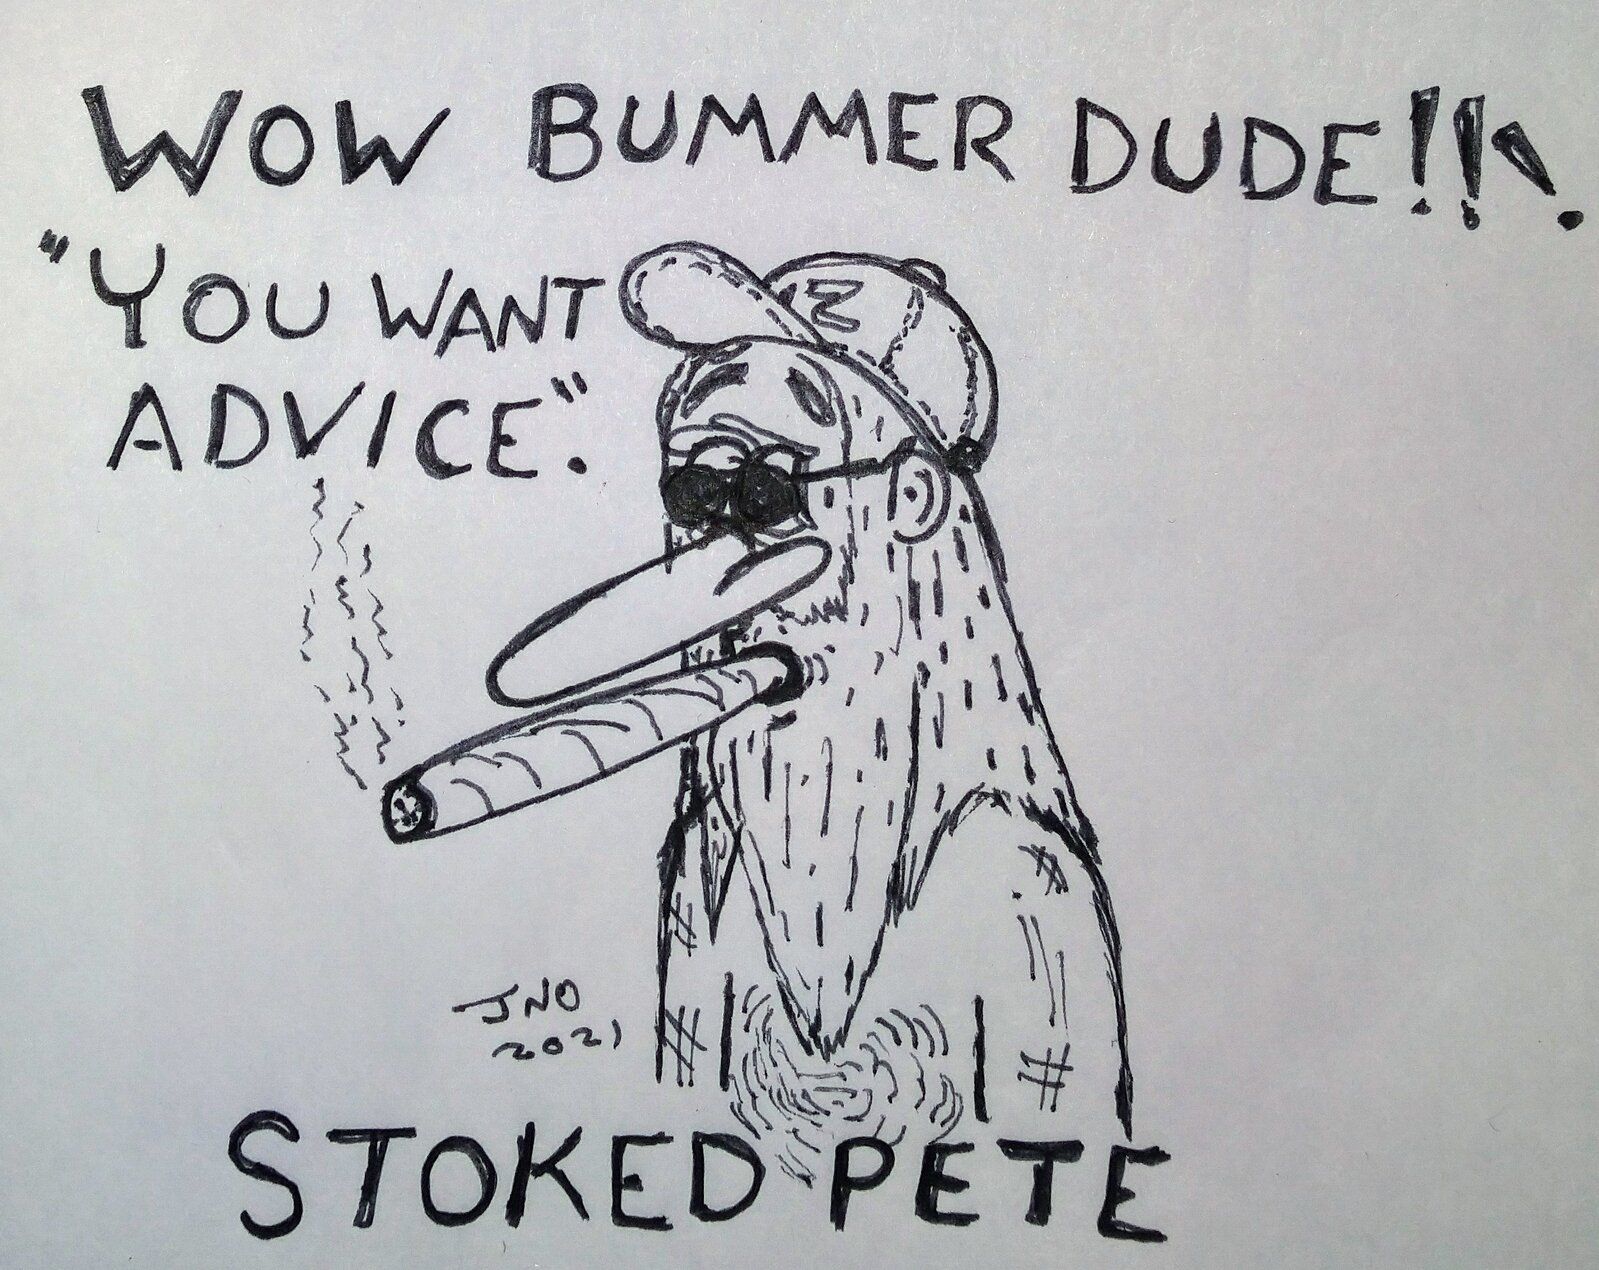 WOW BUMMER DUDE!!!
"YOU WANT
ADVICE."
JNO
2021
STOKED PETE